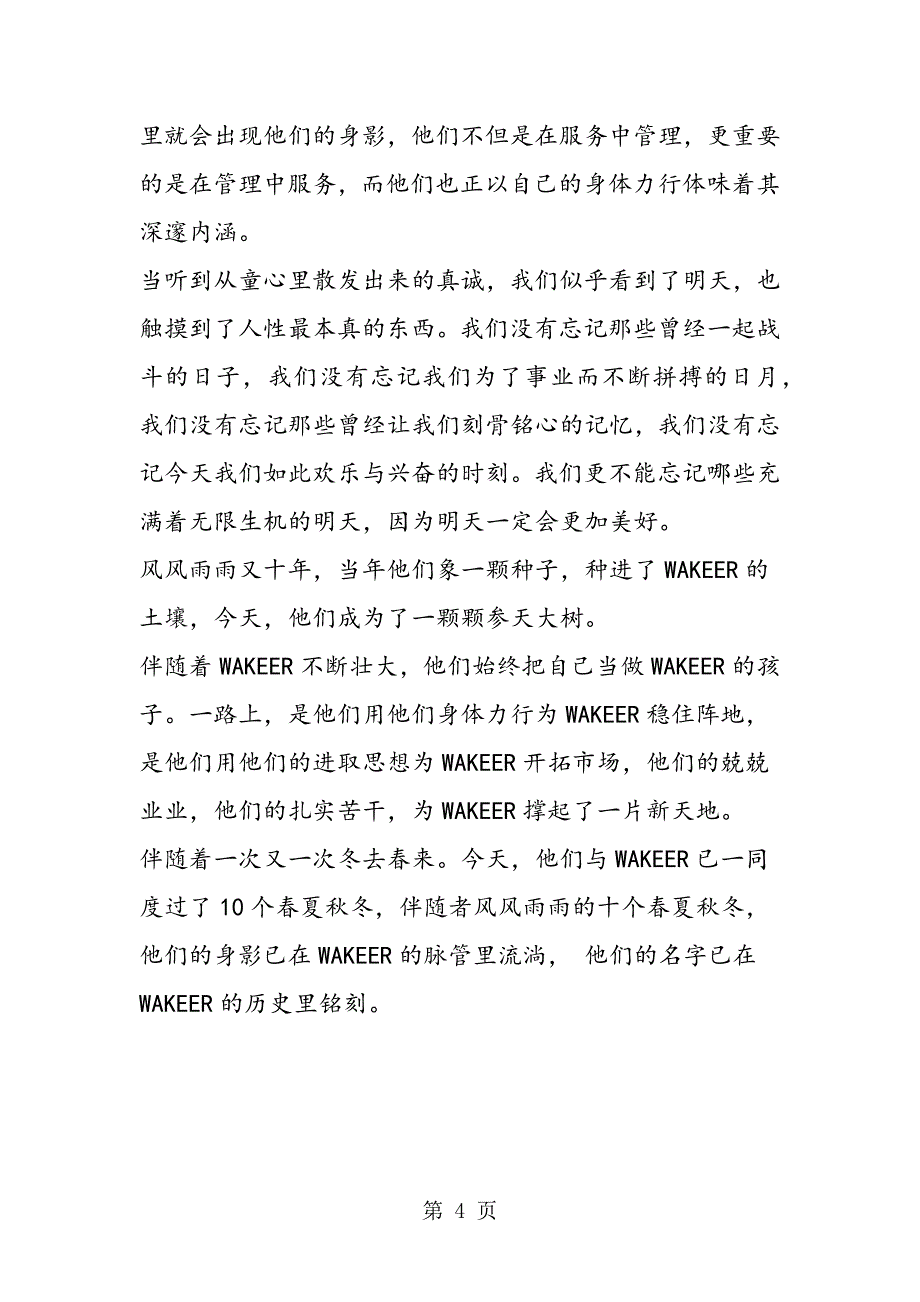 里就会出现他们的身影，他们不但是在服务中管理，更重要
的是在管理中服务，而他们也正以自己的身体力行体味着其
深邃内涵。
当听到从童心里散发出来的真诚，我们似乎看到了明天，也
触摸到了人性最本真的东西。我们没有忘记那些曾经一起战
斗的日子，我们没有忘记我们为了事业而不断拼搏的日月，
我们没有忘记那些曾经让我们刻骨铭心的记忆，我们没有忘
记今天我们如此欢乐与兴奋的时刻。我们更不能忘记哪些充
满着无限生机的明天，因为明天一定会更加美好。
风风雨雨又十年，当年他们象一颗种子，种进了 WAKEER 的
土壤，今天，他们成为了一颗颗参天大树。
伴随着 WAKEER 不断壮大，他们始终把自己当做 WAKEER 的孩
子。一路上，是他们用他们身体力行为 WAKEER 稳住阵地，
是他们用他们的进取思想为 WAKEER 开拓市场，他们的兢兢
业业，他们的扎实苦干，为 WAKEER 撑起了一片新天地。
伴随着一次又一次冬去春来。今天，他们与 WAKEER 已一同
度过了 10 个春夏秋冬，伴随者风风雨雨的十个春夏秋冬，
他们的身影已在 WAKEER 的脉管里流淌， 他们的名字已在
WAKEER 的历史里铭刻。
第 4 页